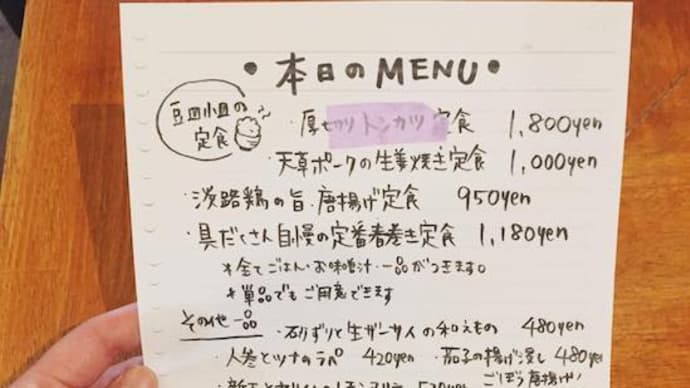 • 本日のMENU •
豆皿小皿の
定食
・厚切りトンカツ定食 1,800yen
・天草ポークの生姜焼き定食 1,000yen
・淡路鶏の旨・唐揚げ定食 950yen
・具だくさん自慢の定番春巻き定食 1,180yen
*全てごはん・お味噌汁・一品がつきます。
*単品でもご用意できます
その他一品
・砂ずりと生ザーサイの和えもの 480yen
・人参とツナのラペ 420yen ・茄子の揚げ浸し 480yen
ごぼう唐揚げ!